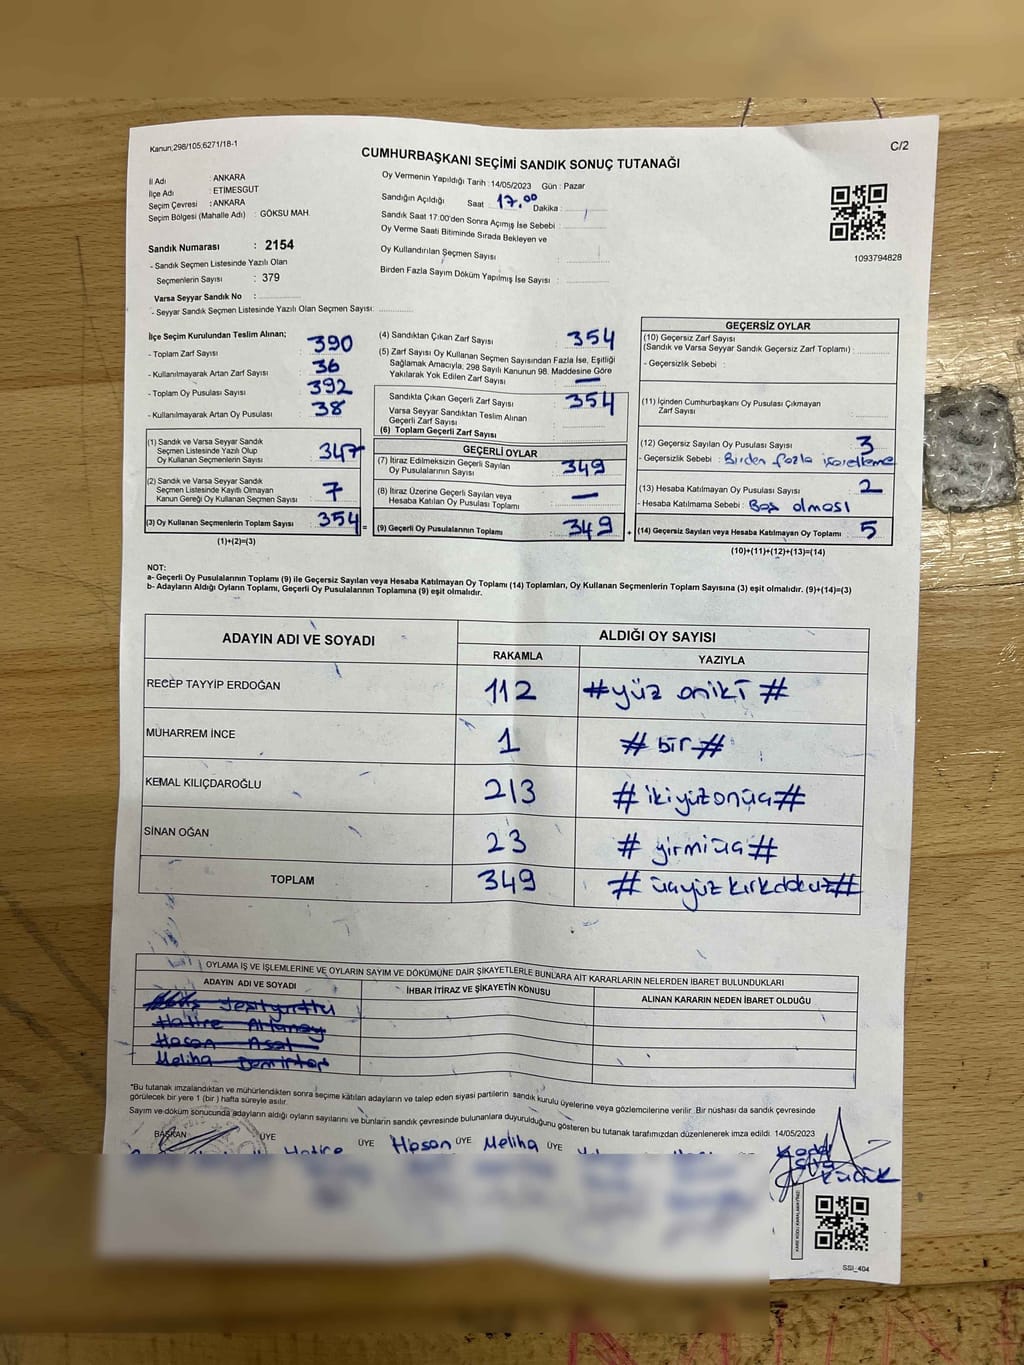 Kanun;298/105,6271/18-1
C/2
CUMHURBAŞKANI SEÇİMİ SANDIK SONUÇ TUTANAĞI
İl Adı : ANKARA
İlçe Adı : ETİMESGUT
Seçim Çevresi : ANKARA
Seçim Bölgesi (Mahalle Adı) : GÖKSU MAH
Sandık Numarası : 2154
- Sandık Seçmen Listesinde Yazılı Olan
Seçmenlerin Sayısı : 379
Varsa Seyyar Sandık No :
- Seyyar Sandık Seçmen Listesinde Yazılı Olan Seçmen Sayısı:
Oy Vermenin Yapıldığı Tarih : 14/05/2023 Gün : Pazar
Sandığın Açıldığı Saat 17.00 Dakika :
Sandık Saat 17.00'den Sonra Açmış İse Sebebi :
Oy Verme Saati Bitiminde Sırada Bekleyen ve
Oy Kullandırılan Seçmen Sayısı :
Birden Fazla Sayım Döküm Yapılmış İse Sayısı :
1093794828
İlçe Seçim Kurulundan Teslim Alınan;
- Toplam Zarf Sayısı : 390
- Kullanılmayarak Artan Zarf Sayısı : 36
- Toplam Oy Pusulası Sayısı : 392
- Kullanılmayarak Artan Oy Pusulası : 38
(1) Sandık ve Varsa Seyyar Sandık
Seçmen Listesinde Yazılı Olup
Oy Kullanan Seçmenlerin Sayısı : 347
(2) Sandık ve Varsa Seyyar Sandık
Seçmen Listesinde Kayıtlı Olmayan
Kanun Gereği Oy Kullanan Seçmen Sayısı : 7
(3) Oy Kullanan Seçmenlerin Toplam Sayısı : 354 =
(1)+(2)=(3)
(4) Sandıktan Çıkan Zarf Sayısı : 354
(5) Zarf Sayısı Oy Kullanan Seçmen Sayısından Fazla İse, Eşitliği
Sağlamak Amacıyla; 298 Sayılı Kanunun 98. Maddesine Göre
Yakılarak Yok Edilen Zarf Sayısı : —
Sandıkta Çıkan Geçerli Zarf Sayısı : 354
Varsa Seyyar Sandıktan Teslim Alınan
Geçerli Zarf Sayısı :
(6) Toplam Geçerli Zarf Sayısı :
GEÇERLİ OYLAR
(7) İtiraz Edilmeksizin Geçerli Sayılan
Oy Pusulalarının Sayısı : 349
(8) İtiraz Üzerine Geçerli Sayılan veya
Hesaba Katılan Oy Pusulaları Toplamı : —
(9) Geçerli Oy Pusulalarının Toplamı : 349 +
GEÇERSİZ OYLAR
(10) Geçersiz Zarf Sayısı
(Sandık ve Varsa Seyyar Sandık Geçersiz Zarf Toplamı) :
- Geçersizlik Sebebi :
(11) İçinden Cumhurbaşkanı Oy Pusulası Çıkmayan
Zarf Sayısı :
(12) Geçersiz Sayılan Oy Pusulası Sayısı : 3
- Geçersizlik Sebebi : Birden fazla işaretleme
(13) Hesaba Katılmayan Oy Pusulası Sayısı : 2
- Hesaba Katılmama Sebebi : Boş olması
(14) Geçersiz Sayılan veya Hesaba Katılmayan Oy Toplamı : 5
(10)+(11)+(12)+(13)=(14)
NOT:
a- Geçerli Oy Pusulalarının Toplamı (9) ile Geçersiz Sayılan veya Hesaba Katılmayan Oy Toplamı (14) Toplamları, Oy Kullanan Seçmenlerin Toplam Sayısına (3) eşit olmalıdır. (9)+(14)=(3)
b- Adayların Aldığı Oyların Toplamı, Geçerli Oy Pusulalarının Toplamına (9) eşit olmalıdır.
ADAYIN ADI VE SOYADI
ALDIĞI OY SAYISI
RAKAMLA YAZIYLA
RECEP TAYYİP ERDOĞAN 112 #yüz oniki#
MUHARREM İNCE 1 #bir#
KEMAL KILIÇDAROĞLU 213 #ikiyüzonüç#
SİNAN OĞAN 23 #yirmiüç#
TOPLAM 349 #üçyüzkırkdokuz#
OYLAMA İŞ VE İŞLEMLERİNE VE OYLARIN SAYIM VE DÖKÜMÜNE DAİR ŞİKAYETLERLE BUNLARA AİT KARARLARIN NELERDEN İBARET BULUNDUKLARI
ADAYIN ADI VE SOYADI İHBAR İTİRAZ VE ŞİKAYETİN KONUSU ALINAN KARARIN NEDEN İBARET OLDUĞU
Hatice Altunay
Hasan
Meliha Demirtaş
*Bu tutanak imzalandıktan ve mühürlendikten sonra seçime katılan adayların ve talep eden siyasi partilerin sandık kurulu üyelerine veya gözlemcilerine verilir. Bir nüshası da sandık çevresinde
görülecek bir yere 1 (bir) hafta süreyle asılır.
Sayım ve döküm sonucunda adayların aldığı oyların sayılarını ve bunların sandık çevresinde bulunanlara duyurulduğunu gösteren bu tutanak tarafımızdan düzenlenerek imza edildi. 14/05/2023
BAŞKAN ÜYE ÜYE ÜYE ÜYE
Hatice Hasan Meliha
Küçük
SSI_404